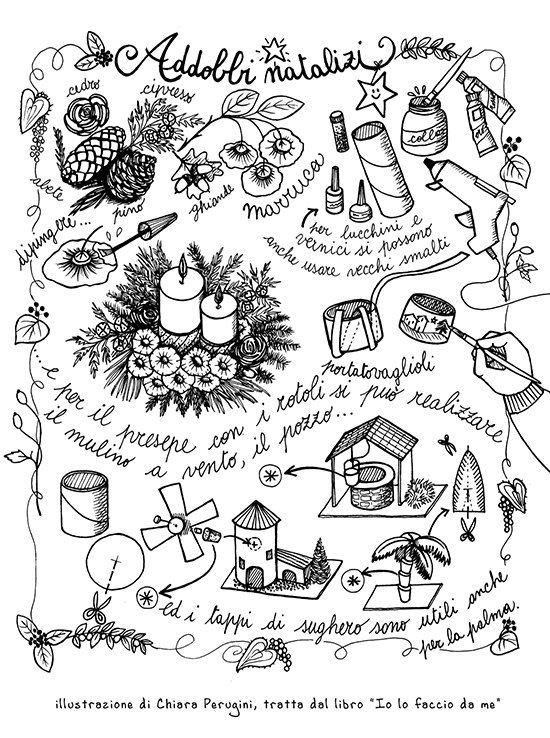 Addobbi natalizi
cedro
cipresso
colla
abete
pino
ghiande
marruca
dipingere...
per lucchini e
vernici si possono
anche usare vecchi smalti
portatovaglioli
...e per il presepe con i rotoli si può realizzare
il mulino a vento, il pozzo...
ed i tappi di sughero sono utili anche
per la palma.
illustrazione di Chiara Perugini, tratta dal libro "Io lo faccio da me"